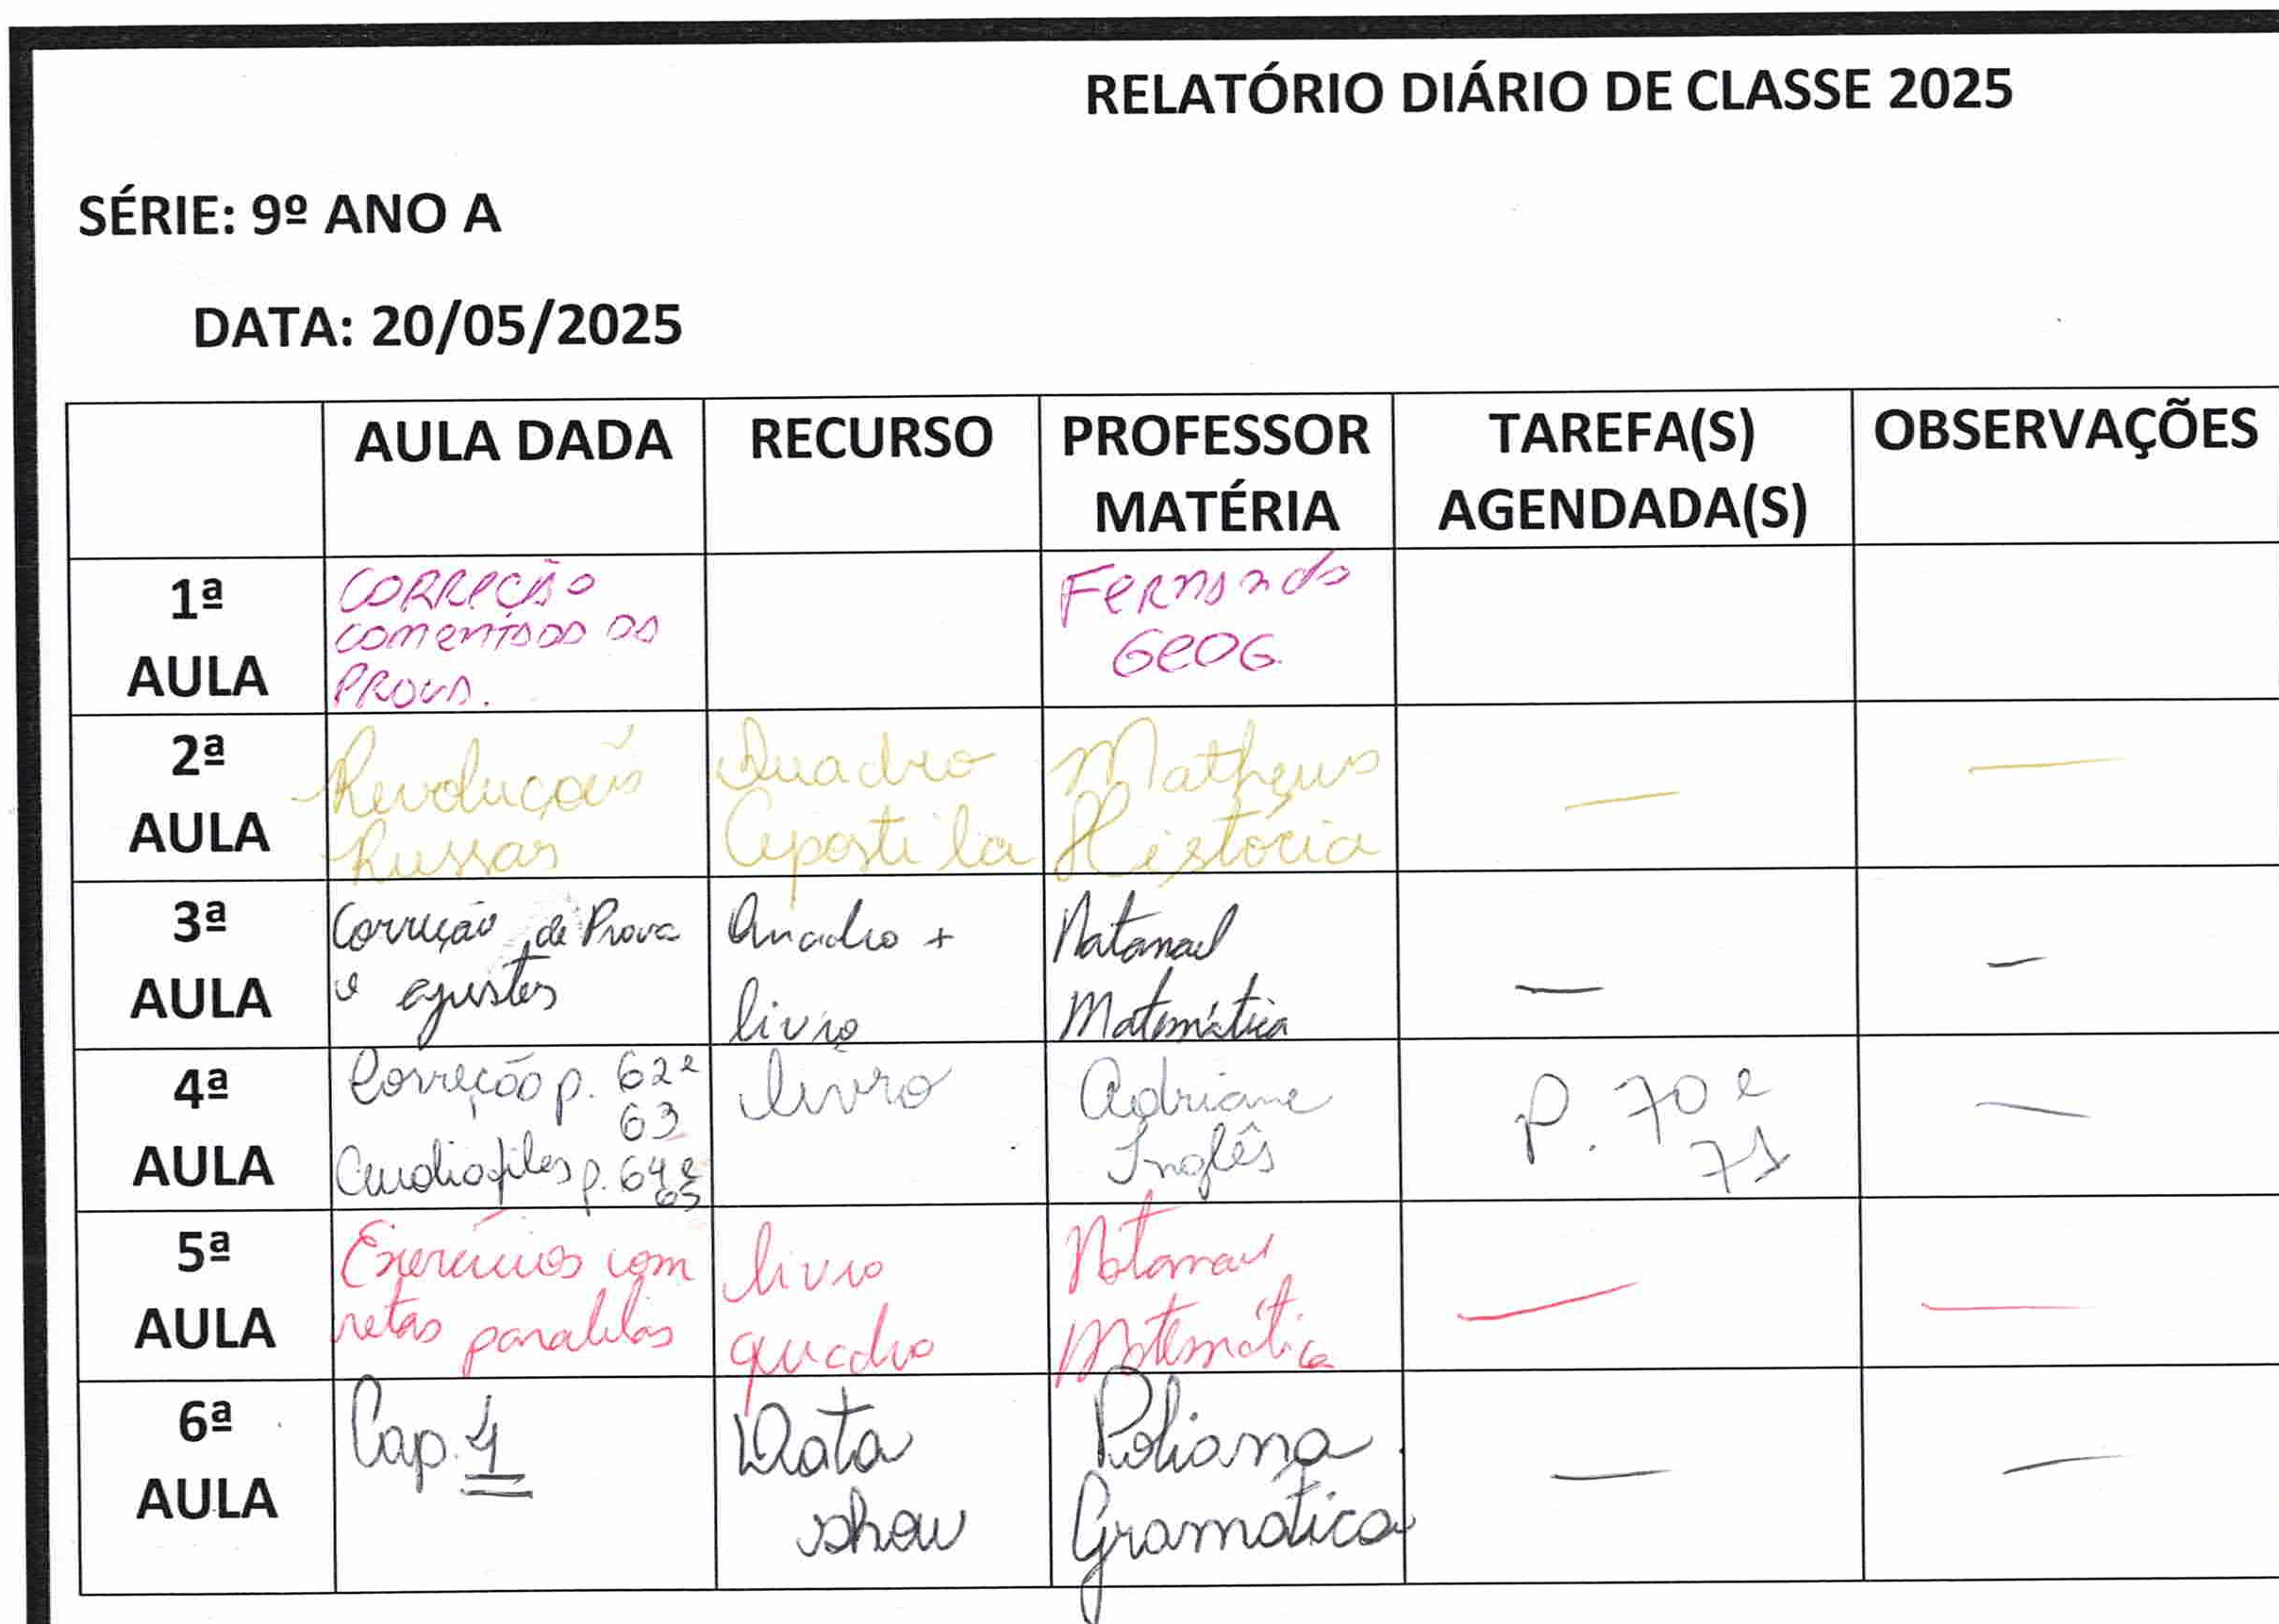 RELATÓRIO DIÁRIO DE CLASSE 2025
SÉRIE: 9º ANO A
DATA: 20/05/2025
AULA DADA RECURSO PROFESSOR MATÉRIA TAREFA(S) AGENDADA(S) OBSERVAÇÕES
1ª AULA
CORREÇÃO
COMENTADA DA
PROVA.
Fernando
GEOG.
2ª AULA
Revoluções
Russas
Quadro
Apostila
Matheus
História
—
—
3ª AULA
Correção de Prova
e ajustes
Quadro +
livro
Natanael
Matemática
—
—
4ª AULA
Correção p. 62 e
63
Audiofiles p. 64 e
65
livro
Adriane
Inglês
p. 70 e
71
—
5ª AULA
Exercícios com
retas paralelas
livro
quadro
Natanael
Matemática
—
—
6ª AULA
Cap. 4
Data
show
Poliana
Gramática
—
—